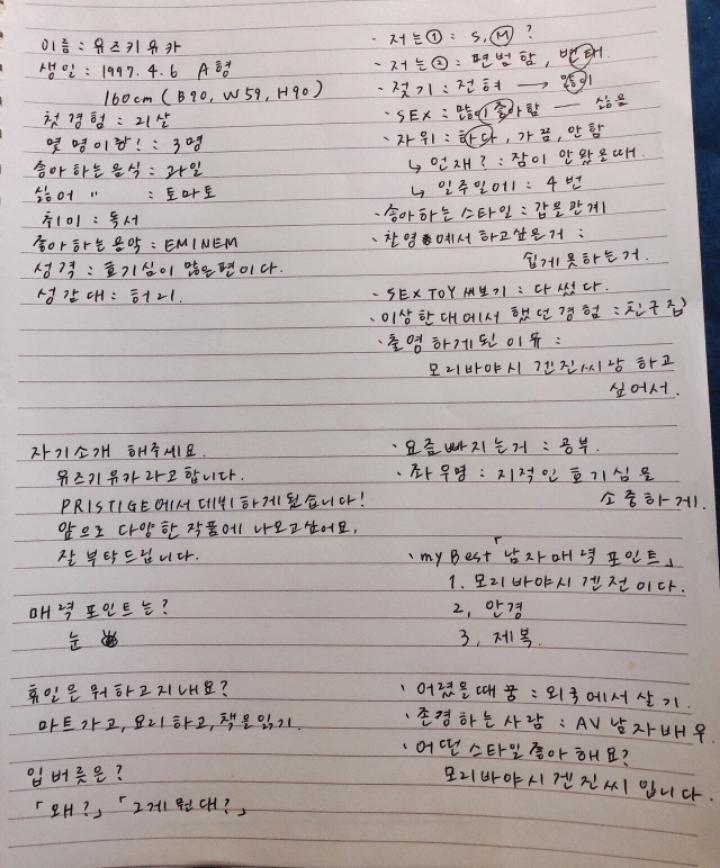 이름 : 유즈키유카
생일 : 1997. 4. 6 A형
160cm ( B90, W59, H90 )
첫 경험 : 21살
몇 명이랑? : 3명
송아하는 음식 : 과일
싫어 〃 : 토마토
취미 : 독서
좋아하는 음악 : EMINEM
성격 : 호기심이 많은편이다.
성감대 : 허리.
자기소개 해주세요.
유즈키유카라고합니다.
PRISTIGE에서 데뷔하게됬습니다!
앞으로 다양한 작품에 나오고싶어요.
잘 부탁드립니다.
매력 포인트는?
눈
휴일은 뭐하고지내요?
마트가고, 요리하고, 책을읽기.
입버릇은?
「왜?」 「그게뭔대?」
· 저는① : S, M ?
· 저는② : 평범함, 변태.
· 젖기 : 전혀 → 많이
· SEX : 많이좋아함 — 싫음
· 자위 : 하다, 가끔, 안함
↳ 언재? : 잠이 안왔을때.
↳ 일주일에 : 4번
· 송아하는 스타일 : 갑을관계
· 촬영에서 하고싶은거 :
쉽게못하는거.
· SEX TOY 써보기 : 다 썼다.
· 이상한대에서 했던경험 : 친구집
· 촬영하게된 이유 :
모리바야시 겐진씨랑 하고
싶어서.
· 요즘빠지는거 : 공부.
· 좌우명 : 지적인 호기심을
소중하게.
· my Best 「남자매력 포인트」
1. 모리바야시 겐진이다.
2, 안경
3, 제복
· 어렸을때꿈 : 외국에서살기.
· 존경하는사람 : AV 남자배우.
· 어떤스타일좋아해요?
모리바야시겐진씨입니다.